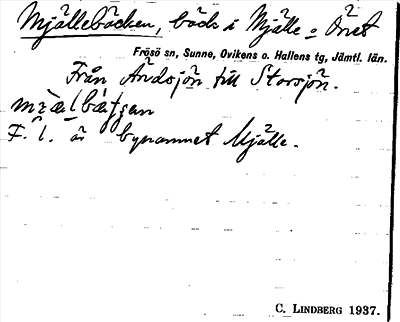 Mjällebäcken, bäck i Mjälle o Önet
Frösö sn, Sunne, Ovikens o. Hallens tg, Jämtl. län.
Från Ändsjön till Storsjön.
F. l. är bynamnet Mjälle.
C. LINDBERG 1937.